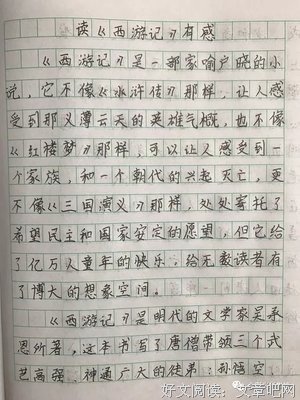 读《西游记》有感
《西游记》是一部家喻户晓的小
说，它不像《水浒传》那样，让人感
受到那义薄云天的英雄气概，也不像
《红楼梦》那样，可以让人感受到一
个家族，和一个朝代的兴起灭亡，更
不像《三国演义》那样，处处寄托了
希望民主和国家安定的愿望，但它给
了亿万人童年的快乐，给无数读者有
了博大的想象空间。
《西游记》是明代的文学家吴承
恩所著，这本书写了唐僧带领三个武
艺高强、神通广大的徒弟：孙悟空
好文阅读：文章吧网